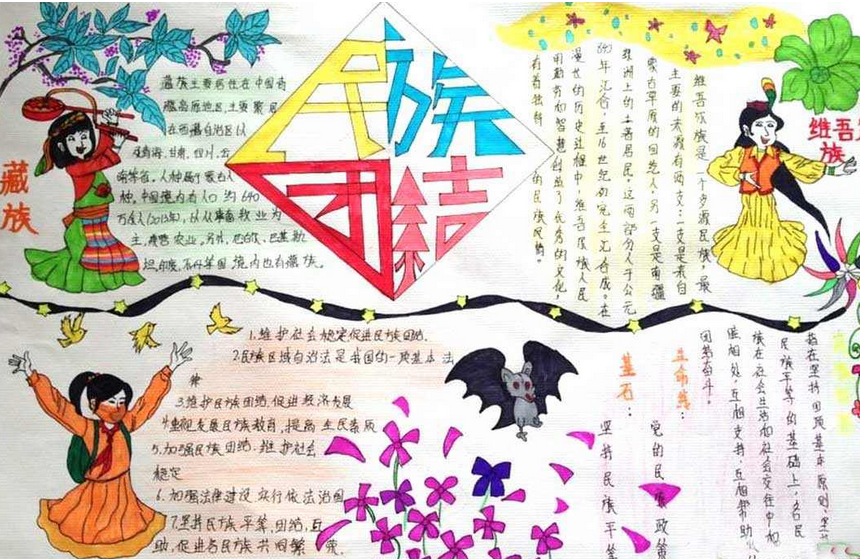 民族
团结
藏族
藏族主要居住在中国青
藏高原地区,主要聚居
在西藏自治区以
青海、甘肃、四川、云
南等省。人种属于蒙古人
种。中国境内有人口约640
万人(2013年),以从事畜牧业为
主,兼营农业。另外,巴基斯
坦、印度、不丹等国境内也有藏族。
维吾尔族
维吾尔族是一个多源民族,最
主要的来源有两支:一支是来自
蒙古草原的回纥人,另一支是南疆
绿洲上的土著居民。这两部分人于公元
840年汇合,至16世纪初完全汇合成。在
漫长的历史过程中,维吾尔族人民
用勤劳和智慧创造了优秀的文化,
有着独特的民族风情。
1.维护社会稳定促进民族团结.
2.民族区域自治法是我国的一项基本法
律
3.维护民族团结,促进经济发展
4.重视发展民族教育,提高生民素质
5.加强民族团结.维护社会
稳定
6.加强法律建设,实行依法治国
7.坚持民族平等,团结,互
助,促进各民族共同繁荣。
指在坚持四项基本原则,坚
民族平等的基础上,各民
族在社会生活和社会交往中和
睦相处,互相支持,互相帮助,
团结奋斗。
生命线:
党的民族政策
基石:
坚持民族平等